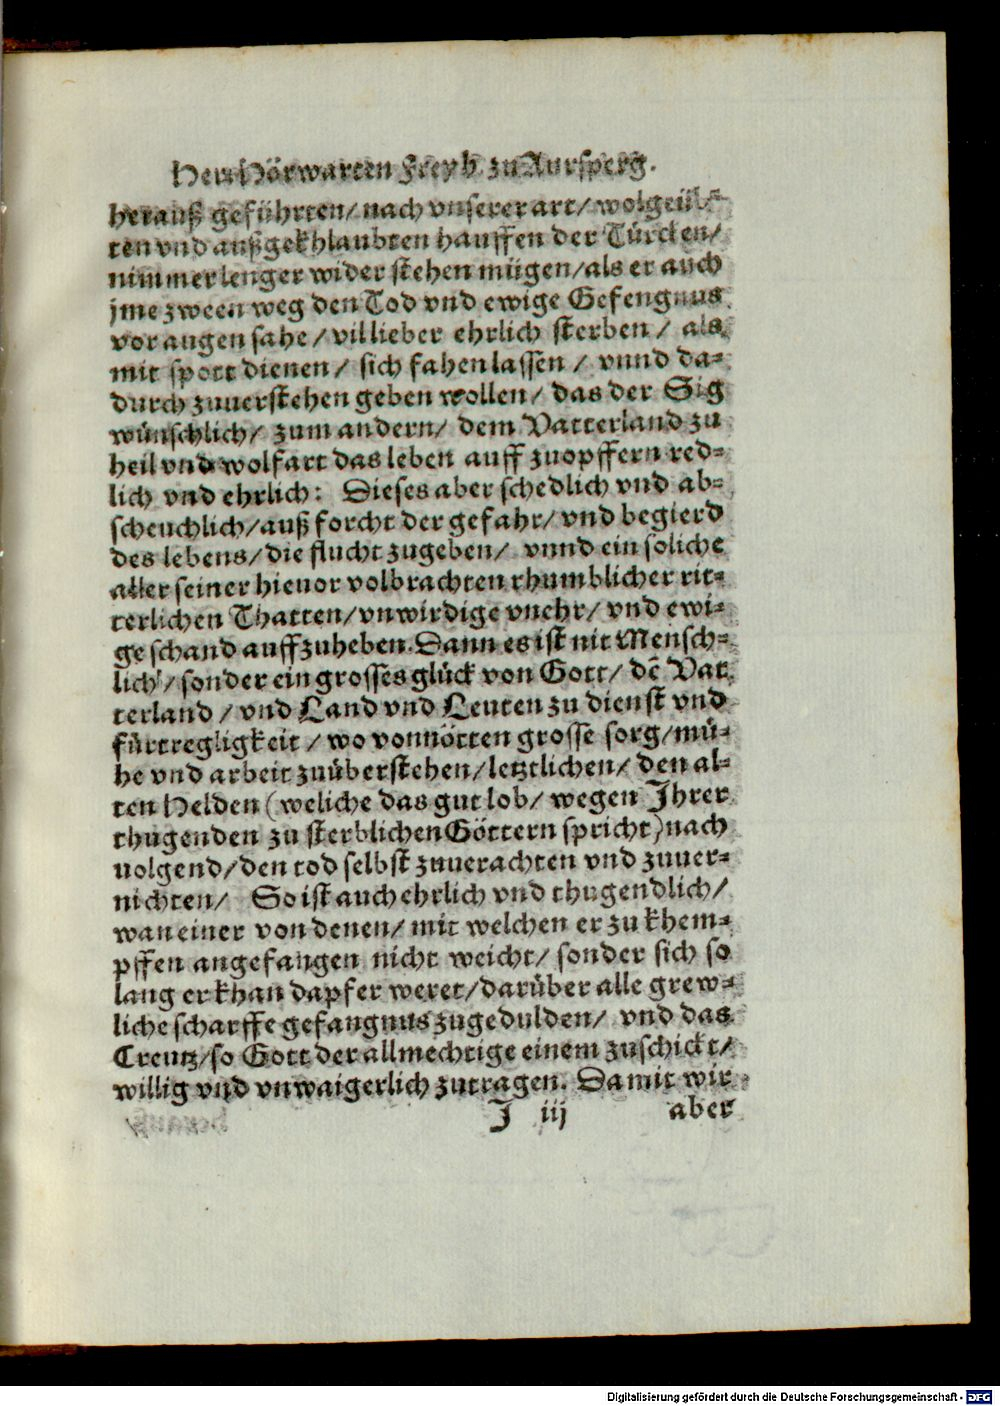 Herr Hörwarten Freyh. zu Aursperg.
herauß geführten/ nach vnserer art/ wolgeüb-
ten vnd außgekhlaubten hauffen der Türcken/
nimmer lenger wider stehen mügen/ als er auch
jme zween weg den Tod vnd ewige Gefengnus
vor augen sahe/ vil lieber ehrlich sterben/ als
mit spott dienen/ sich fahen lassen/ vnnd da-
durch zuuerstehen geben wollen/ das der Sig
wünschlich/ zum andern/ dem Vatterland zu
heil vnd wolfart das leben auff zuopffern red-
lich vnd ehrlich: Dieses aber schedlich vnd ab-
scheuchlich/ auß forcht der gefahr/ vnd begierd
des lebens/ die flucht zugeben/ vnnd ein soliche
aller seiner hieuor volbrachten rhumblicher rit-
terlichen Thatten/ vnwirdige vnehr/ vnd ewi-
ge schand auffzuheben. Dann es ist nit Mensch-
lich/ sonder ein grosses glück von Gott/ dē Vat-
terland/ vnd Land vnd Leuten zu dienst vnd
fürtregligkeit/ wo vonnötten grosse sorg/ mü-
he vnd arbeit zuüberstehen/ letztlichen/ den al-
ten Helden (weliche das gut lob/ wegen Jhrer
thugenden zu sterblichen Göttern spricht) nach
uolgend/ den tod selbst zuuerachten vnd zuuer-
nichten/ So ist auch ehrlich vnd thugendlich/
wan einer von denen/ mit welchen er zu khem-
pffen angefangen nicht weicht/ sonder sich so
lang er khan dapfer weret/ darüber alle grew-
liche scharffe gefangnus zugedulden/ vnd das
Creutz/ so Gott der allmechtige einem zuschickt/
willig vnd vnwaigerlich zutragen. Damit wir
J iij aber
Digitalisierung gefördert durch die Deutsche Forschungsgemeinschaft - DFG